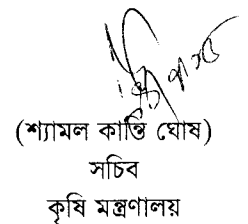 (শ্যামল কান্তি ঘোষ)
সচিব
কৃষি মন্ত্রণালয়